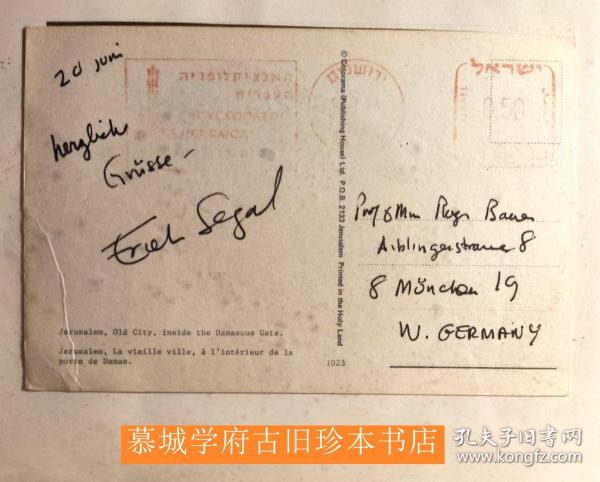 20 juni
herzlich
Grüsse -
Erich Segal
האנציקלופדיה
העברית
ENCYCLOPAEDIA
HEBRAICA
ירושלים
ישראל
0.50
© Colorama (Publishing House) Ltd. P.O.B. 2133 Jerusalem Printed in the Holy Land
Prof & Mrs Roger Bauer
Aiblingerstrasse 8
8 München 19
W. GERMANY
Jerusalem, Old City, inside the Damascus Gate.
Jerusalem, La vieille ville, à l'intérieur de la
porte de Damas.
1023
慕城学府古旧珍本书店
孔夫子旧书网
www.kongfz.com